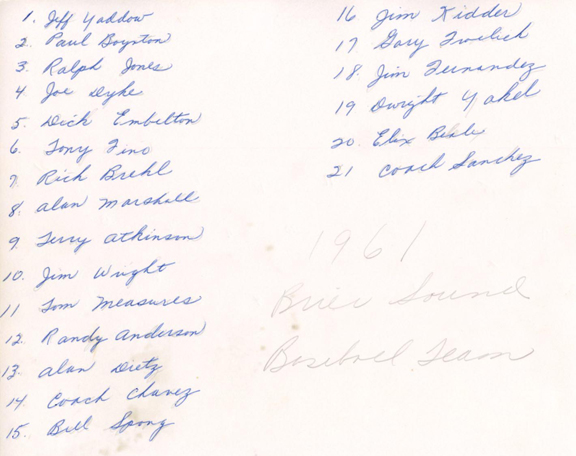 1. Jeff Yaddow
2. Paul Boynton
3. Ralph Jones
4 Joe Dyke
5. Dick Embelton
6. Tony Fino
7. Rich Brehl
8. Alan Marshall
9. Terry Atkinson
10. Jim Wright
11 Tom Measures
12. Randy Anderson
13. Alan Dietz
14. Coach Chavez
15. Bill Spong
16 Jim Kidder
17 Gary
18. Jim Fernandez
19 Dwight Yakel
20.
21 Coach Sanchez
1961
Sound
Baseball Team